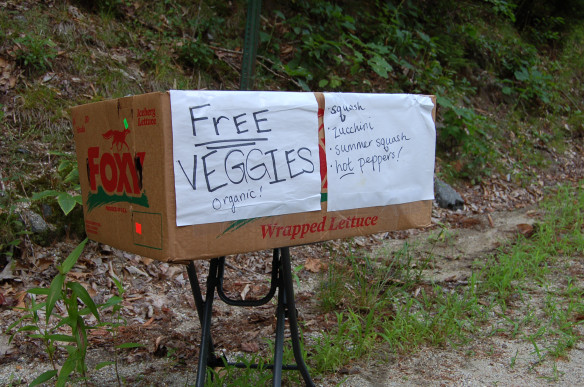 Iceberg
Lettuce
FOXY
FREE
VEGGIES
organic!
squash
zucchini
summer squash
hot peppers!
Wrapped Lettuce